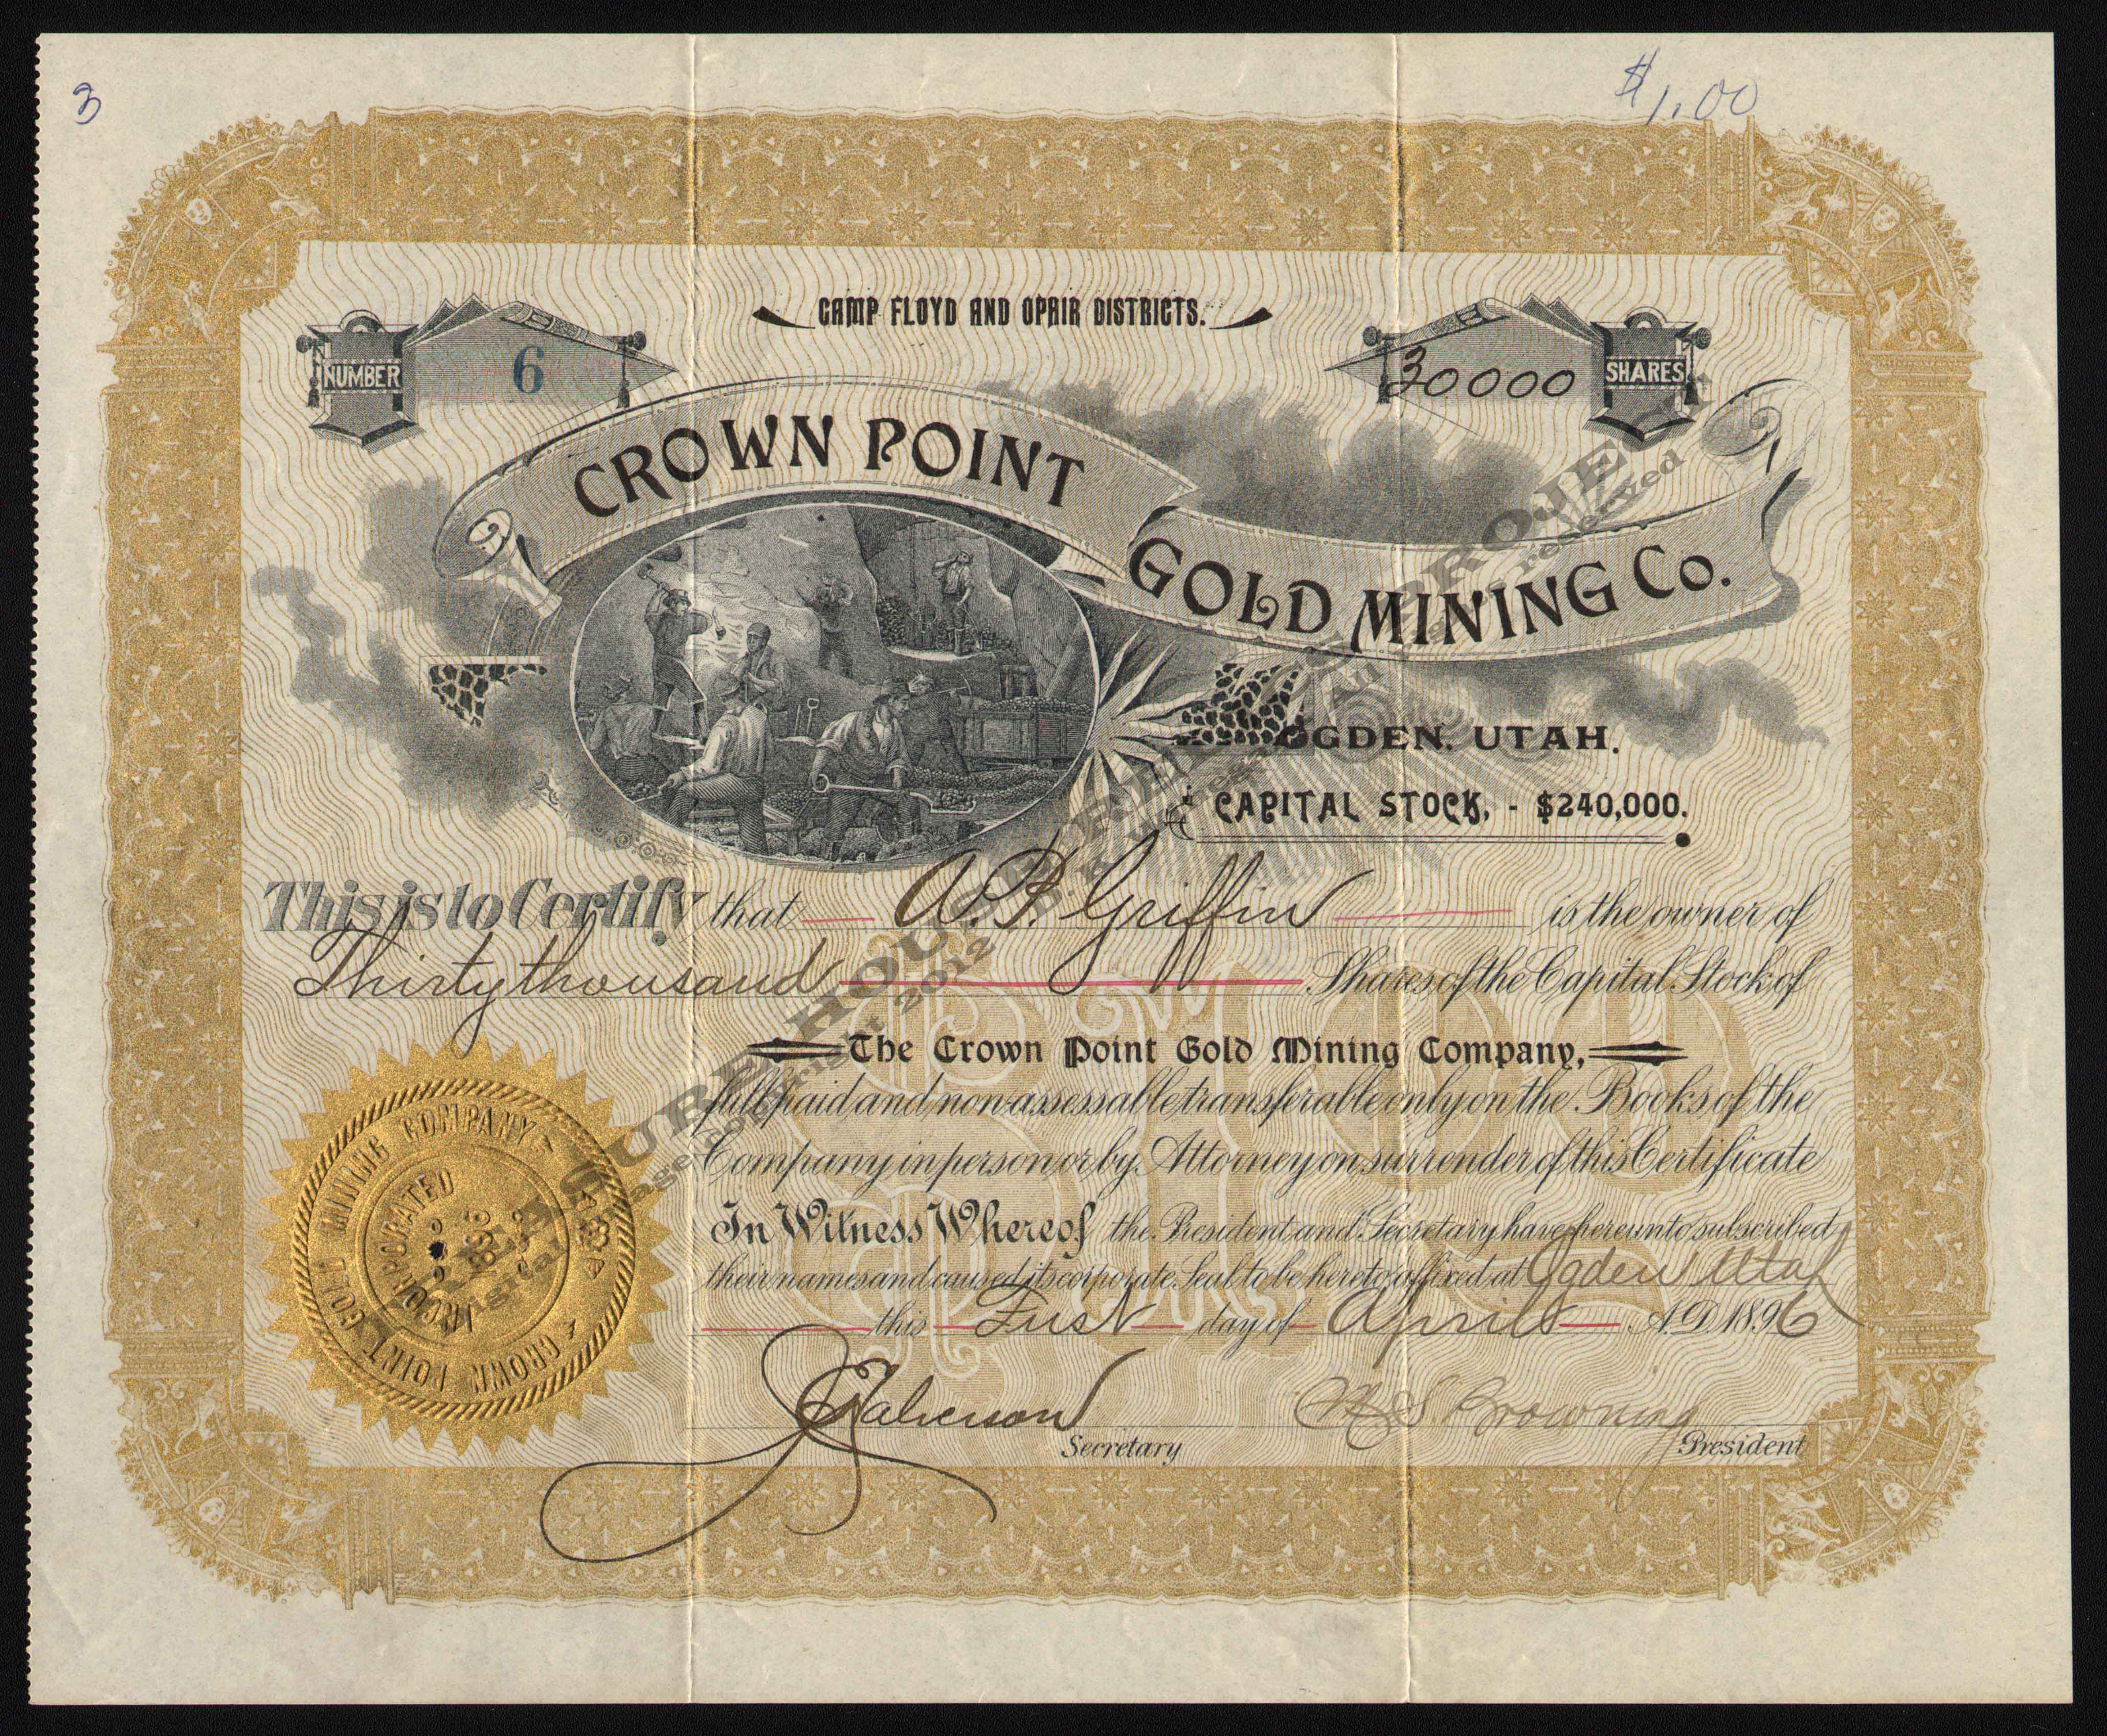 3
$1.00
CAMP FLOYD AND OPHIR DISTRICTS.
NUMBER 6
30000 SHARES
CROWN POINT
GOLD MINING Co.
OGDEN. UTAH.
CAPITAL STOCK, - $240,000.
This is to Certify that A. P. Griffin is the owner of
Thirty thousand Shares of the Capital Stock of
The Crown Point Gold Mining Company,
full paid and non-assessable transferable only on the Books of the
Company in person or by Attorney on surrender of this Certificate
In Witness Whereof the President and Secretary have hereunto subscribed
their names and caused its corporate Seal to be hereto affixed at Ogden Utah
this First day of April A.D. 1896
Halverson
Secretary
M S. Browning
President
CROWN POINT GOLD MINING COMPANY
INCORPORATED
1896
HOUSE PROJECT
2012
reserved